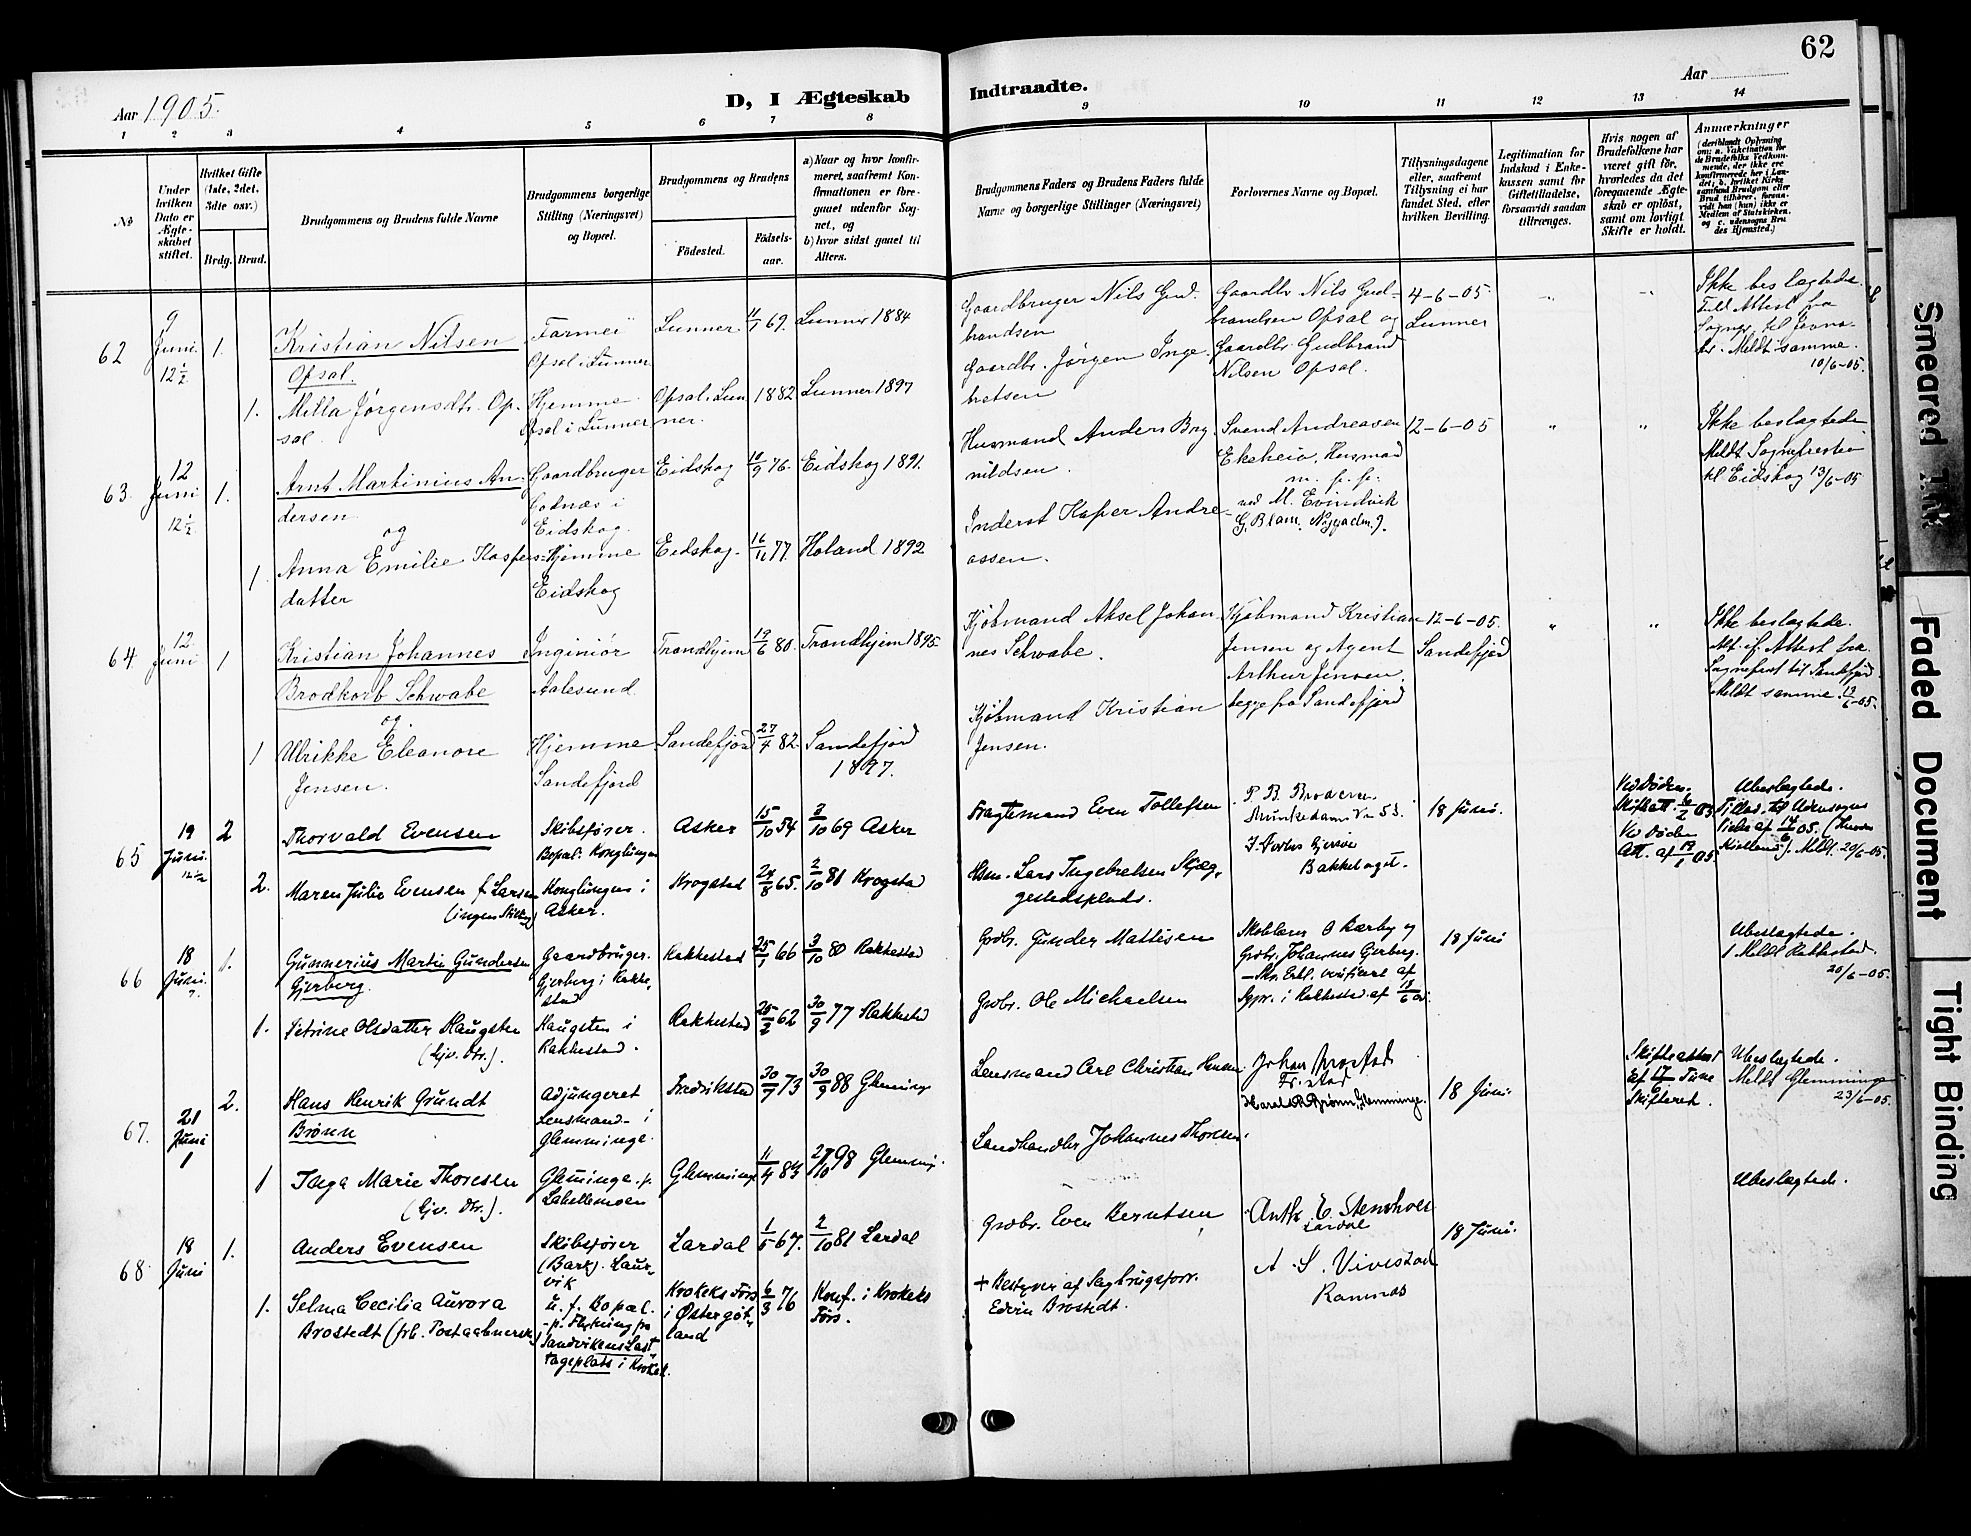 62
Aar 1905.
D, I Ægteskab
Indtraadte.
Aar
1 2 3 4 5 6 7 8 9 10 11 12 13 14
No
Under hvilken Dato er Ægteskabet stiftet.
Hvilket Gifte (1ste, 2det, 3die osv.)
Brdg. Brud.
Brudgommens og Brudens fulde Navne
Brudgommens borgerlige Stilling (Næringsvei) og Bopæl.
Brudgommens og Brudens
Födested.
Födselsaar.
a) Naar og hvor konfirmeret, saafremt Konfirmationen er foregaaet udenfor Sognet, og
b) hvor sidst gaaet til Alters.
Brudgommens Faders og Brudens Faders fulde Navne og borgerlige Stillinger (Næringsvei)
Forlovernes Navne og Bopæl.
Tillysningsdagene eller, saafremt Tillysning ei har fundet Sted, efter hvilken Bevilling.
Legitimation for Indskud i Enkekassen samt for Giftetilladelse, forsaavidt saadan tiltrænges.
Hvis nogen af Brudefolkene har været gift för, hvorledes da det foregaaende Ægteskab er oplöst, samt om lovligt Skifte er holdt.
Anmærkninger
(deriblandt Oplysning om: a. Vakcination for de Brudefolks Vedkommende, der ikke ere konfirmerede her i Landet; b. hvilket Kirkesamfund Brudgom eller Brud tilhörer, forsaavidt han (hun) ikke er Medlem af Statskirken, og c. udensogns Brudes Hjemsted.)
62 9 Juni 12½ 1. Kristian Nilsen Opsal. Farmer Opsal i Lunner Lunner 69. Lunner 1884
Gaardbruger Nils Gudbrandsen
Gaardbr. Nils Gudbrandsen Opsal og Gaardbr. Gudbrand Nilsen Opsal.
4-6-05. Lunner
Ikke beslægtede.
Meldt samme. 10/6-05.
1. Milla Jørgensdtr. Opsal. Hjemme Opsal i Lunner Opsal i Lunner. 1882 Lunner 1897
Gaardbr. Jørgen Ingebretsen
63 12 Juni 12½ 1. Arnt Martinius Andersen og Gaardbruger i Eidskog. Eidskog 10/9 76. Eidskog 1891.
Husmand Anders Brynildsen.
Svend Andreasen Ekeheia, Husmand
m. f. f.
ved M. Evindvik
12-6-05
Ikke beslægtede
til Eidskog 13/6-05
1. Anna Emilie Kaspersdatter Hjemme Eidskog Eidskog 16/11 77. Høland 1892
Inderst Kasper Andreassen.
64 12 Juni 1 Kristian Johannes Brodkorb Schwabe og. Inginiør Aalesund Trondhjem 19/6 80. Trondhjem 1895.
Kjøbmand Aksel Johannes Schwabe.
Kjøbmand Kristian Jensen og Agent Arthur Jensen, begge fra Sandefjord
12-6-05. Sandefjord
Ikke beslægtede.
Meldt samme
1 Ulrikke Eleanore Jensen. Hjemme Sandefjord Sandefjord 27/4 82. Sandefjord 1897.
Kjøbmand Kristian Jensen.
65 19 Juni. 12½ 2 Thorvald Evensen Skibsfører. Bopæl: Konglungen Asker 15/10 54 3/10 69 Asker
Fragtemand Even Tollefsen
P. B. Brodersen
Munkedamsvn 53.
Bakkehaget.
18 Juni.
Ved Døden.
Ved Døden
Att. af 05.
Ubeslægtede.
Meldt. 20/6-05.
2. Maren Julie Evensen f. Larsen (ingen Stilling) Konglungen i Asker. Krogstad 24/8 65. 2/10 81 Krogstad
Hsm. Lars Ingebretsen Skjæggestedsplads.
66 18 Juni. 7. 1. Gunnerius Martin Gundersen Gjerberg. Gaardbruger. Gjerberg i Rakkestad Rakkestad 25/1 66 3/10 80 Rakkestad
Grdbr. Gunder Mattisen
Skoblærer O Rærby og
Grdbr. Johannes Gjerberg.
18 Juni
Ubeslægtede.
Meldt Rakkestad 20/6-05.
1. Petrine Olsdatter Haugsten (Gjv. Dtr.). Haugsten i Rakkestad. Rakkestad 25/2 62 30/9 77 Rakkestad
Grdbr. Ole Michaelsen
67. 21 Juni 1 2. Hans Henrik Grundt Brønn Adjungeret Lensmand i Glemminge. Fredrikstad 30/7 73 30/9 88 Glemminge
Lensmand Carl Christian Hansen
Fr.stad
Harald R Brønn, Glemminge.
18 Juni.
Skifteattest
af 17/6 Tune
Skifteret.
Ubeslægtede.
Meldt Glemminge 23/6-05.
1 Inga Marie Thoresen (Gjv. Dtr.). Glemminge. Labellemoen Glemminge 11/4 84 27/10 98 Glemminge.
Landhandler Johannes Thoresen.
68 18 Juni 1. Anders Evensen Skibsfører (Bark). Laurvik Lardal 1/5 67. 2/10 81 Lardal
Grdbr. Even Berntsen
Anth. E. Stensholt Lardal
A. S. Vivestad Ramnes
18 Juni.
Ubeslægtede.
1. Selma Cecilia Aurora Brostedt (frh. Postaabnerske) u. f. Bopæl. Sandvikens Lasttageplats i Krokek. Krokeks Förs i Østergötland 6/3 76 Konf. i Krokeks Förs.
+ Bestyrer af Sagbrugsforr. Edvin Brostedt.
Smeared Ink
Faded Document
Tight Binding